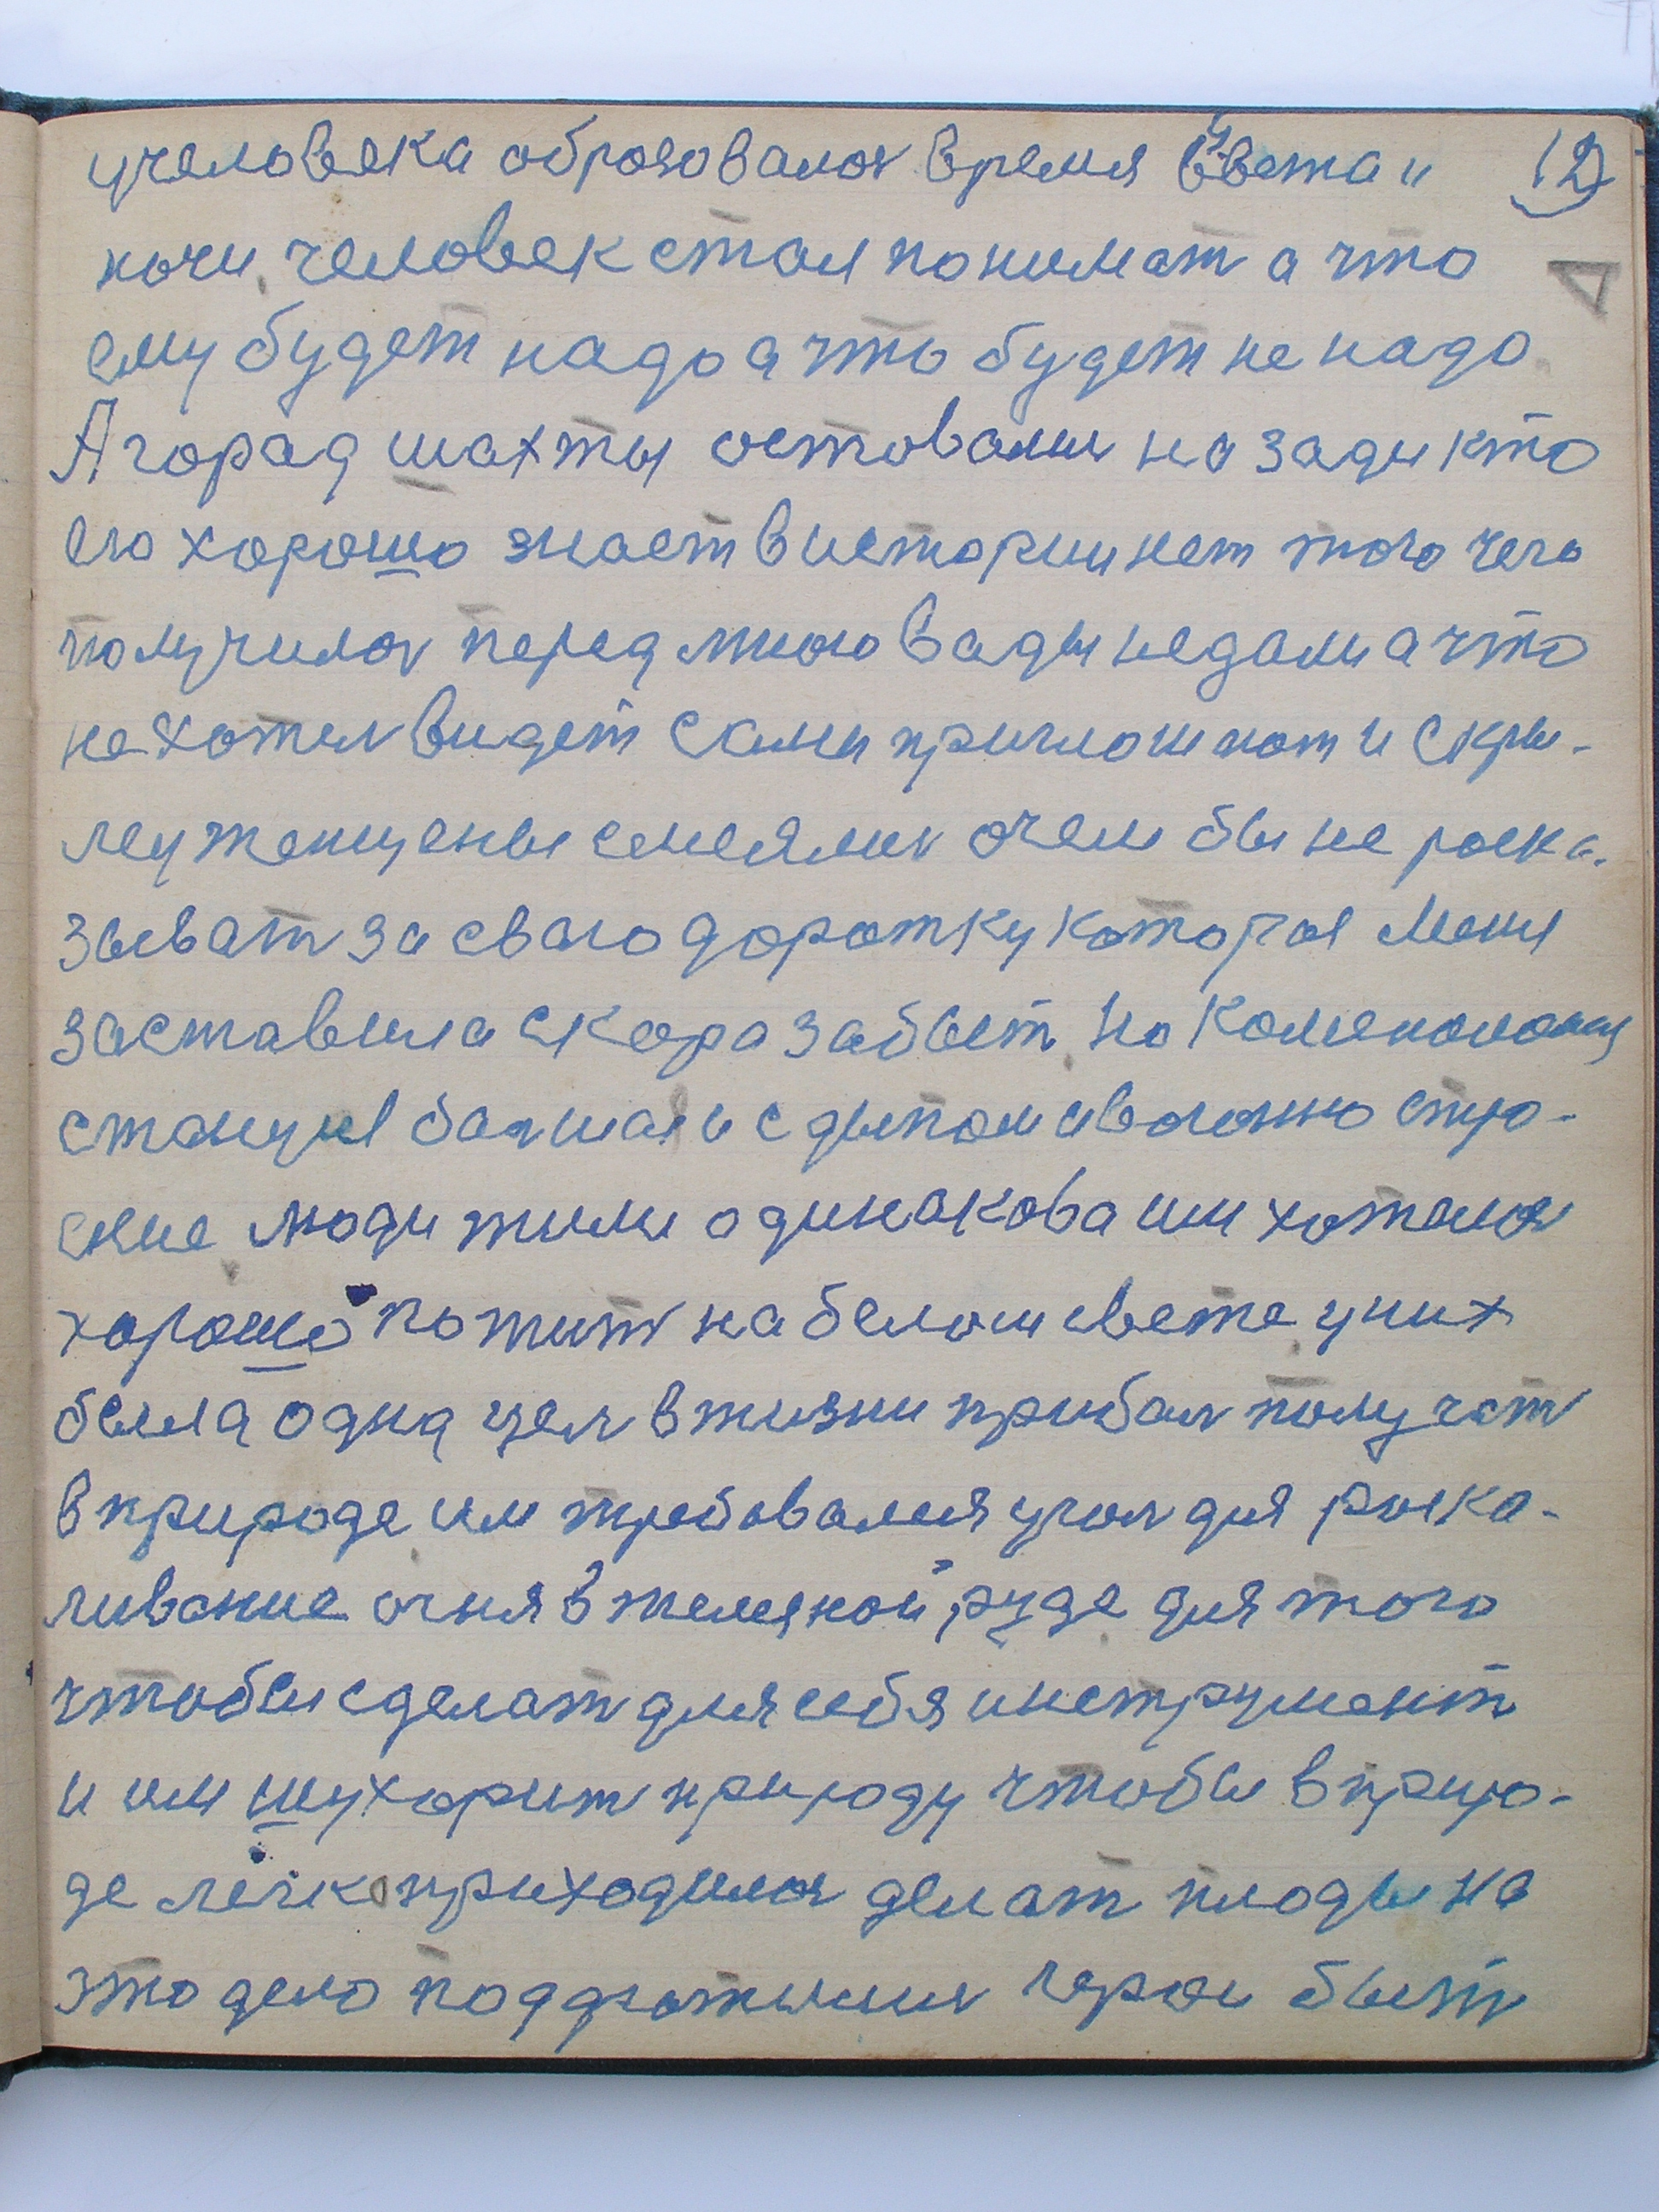 учеловека образовалоя время света и 12
ночи, человек стал понимат а что
ему будет надо а что будет не надо
А горад шахты оставали на зади кто
его хорошо знает в истории нет того чего
получилоя перед мною вады недали а что
не хотел видет сами приглошают и скры-
неясь о чем бы не раска-
зыват за сваю доротку которая меня
заставила скора забыт, на
станция балшая и с дыпом
сние люди жили одинакова им хотелоя
хорошо пожит на белом свете, у них
была одна цел в жизни прибал получат
в природе им требовался угол для раска-
ливание огня в железной руде для того
чтобы сделат для себя инструмент
и им шухорит природу чтобы в приро-
де легко приходилоя делат плоды на
это дело герои быт